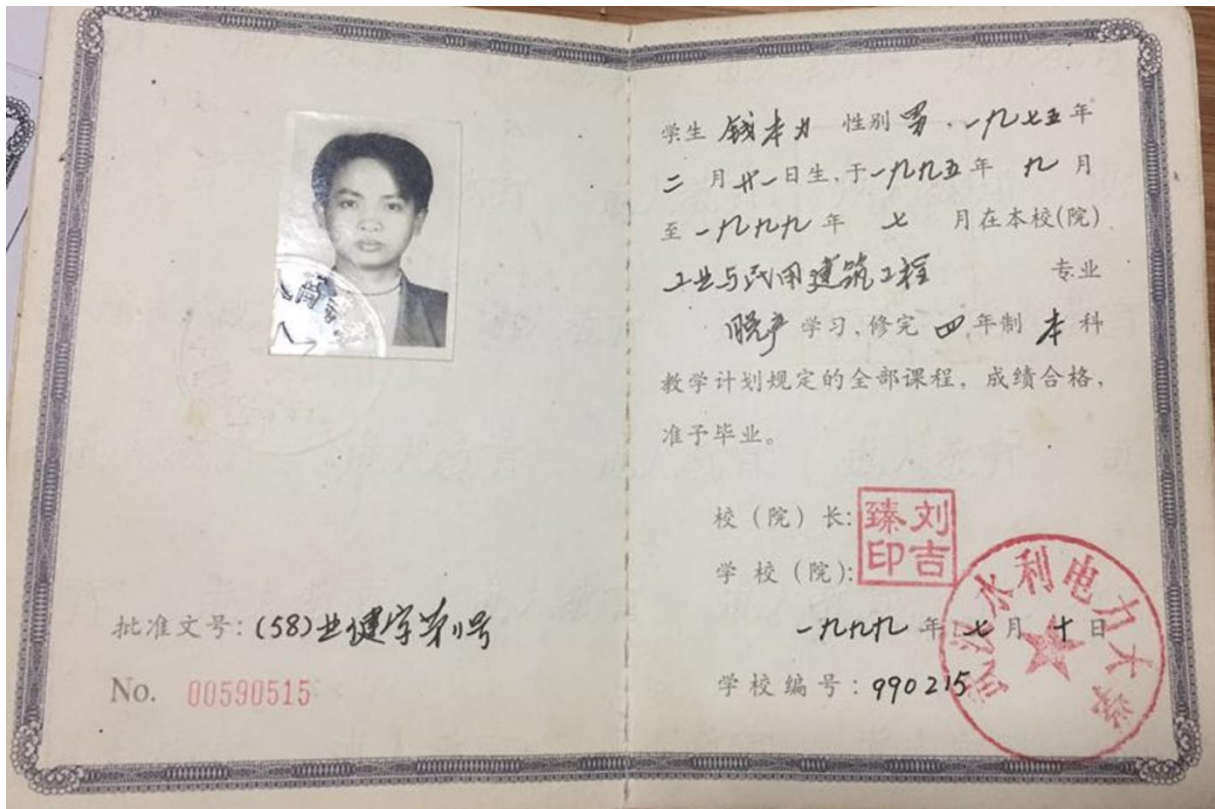 批准文号:(58)业健字第11号
No. 00590515
学生 钱本力 性别 男.一九七五年
二月廿一日生,于一九九五年 九月
至一九九九年 七 月在本校(院)
工业与民用建筑工程 专业
脱产学习,修完 四年制 本科
教学计划规定的全部课程,成绩合格,
准予毕业。
校(院)长:
刘吉臻印
学校(院):
武汉水利电力大学
一九九九年七月十日
学校编号:990215